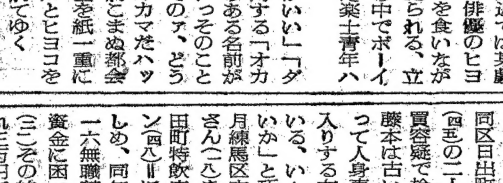 俳優のヒヨ
を食いなが
られる、立
中でボーイ
楽士青年ハ
いい」「ダ
する「オカ
ある名前が
っそのこと
のァ、どう
カマだハッ
こまぬ都会
を紙一重に
とヒヨコを
てゆく
同区日出町
(四五)の二人
買容疑で
藤本は古い
って人身売
入りする
いる、い
いか」と
月練馬区
さん(一八)
田町特飲
ン(四八)=
しめ、同
一六無職
資金に困
(二)その